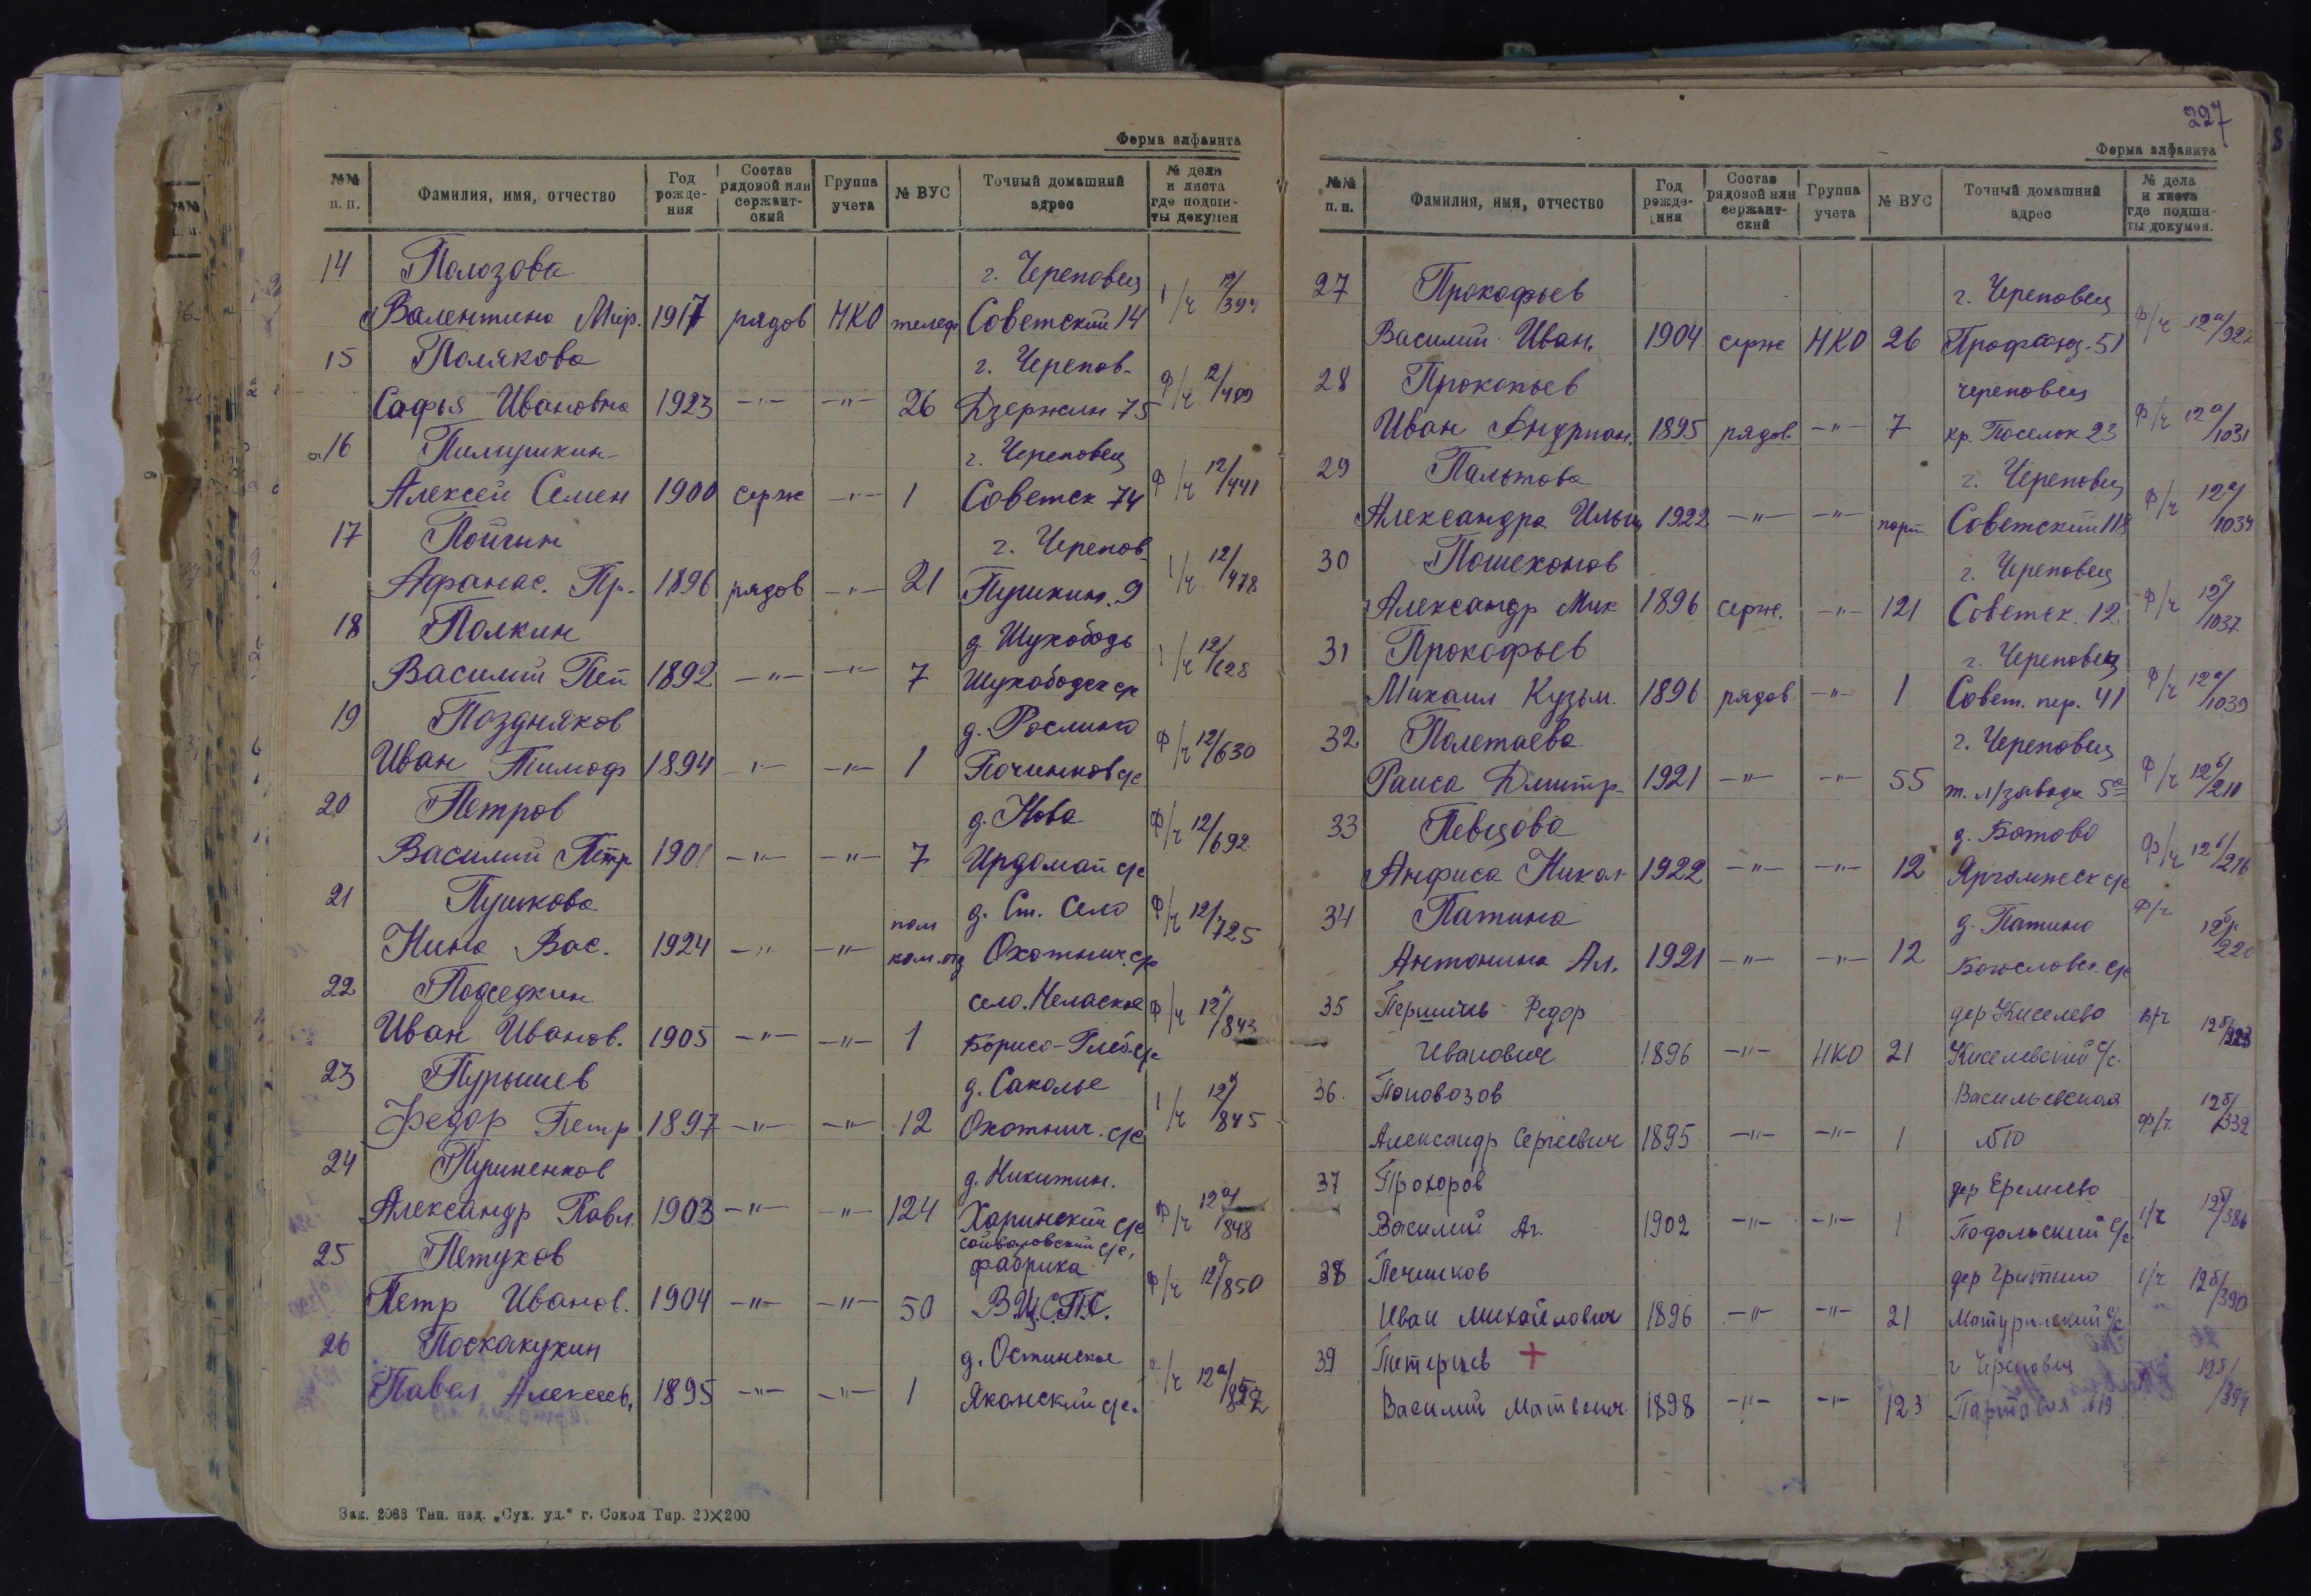 Форма алфавита
№№ п. п. Фамилия, имя, отчество Год рождения Состав рядовой или сержантский Группа учета № ВУС Точный домашний адрес № дела и листа где подшиты докумен
14 Полозова г. Череповец
Валентина Мир. 1917 рядов НКО телеф Советский 14 1/ч 12/394
15 Полякова г. Черепов-
Софья Ивановна 1923 -"- -"- 26 Дзержин 75 Ф/ч 12/409
16 Пилюшкин г. Череповец
Алексей Семен 1900 серж -"- 1 Советск 74 Ф/ч 12/441
17 Пойгин г. Черепов-
Афанас. Пр. 1896 рядов -"- 21 Пушкин. 9 1/ч 12/478
18 Полкин д. Шухободь
Василий Пет 1892 -"- -"- 7 Шухободск ср 1/ч 12/628
19 Поздняков д. Рослино
Иван Тимоф 1894 -"- -"- 1 Починков с/с Ф/ч 12/630
20 Петров д. Нова
Василий Петр 1901 -"- -"- 7 Ирдомат с/с Ф/ч 12/692
21 Пушкова пом д. Ст. Село
Нина Вас. 1924 -"- -"- ком.отд Охотнич. ср Ф/ч 12/725
22 Подседкин село. Нелаское
Иван Иванов. 1905 -"- -"- 1 Борисо-Глеб.с/с Ф/ч 12а/843
23 Пурышев д. Саколье
Федор Петр 1897 -"- -"- 12 Охотнич. с/с 1/ч 12а/845
24 Пушненков д. Никитин.
Александр Павл. 1903 -"- -"- 124 Харинский с/с Ф/ч 12а/848
25 Петухов с/с, фабрика
Петр Иванов. 1904 -"- -"- 50 В.Ц.С.П.С. Ф/ч 12а/850
26 Поскакухин д. Остинское
Павел Алексеев. 1895 -"- -"- 1 Яконский с/с. /ч 12а/
Зак. 2063 Тип. изд. „Сух. уд." г. Сокол Тир. 20×200
227
Форма алфавита
№№ п. п. Фамилия, имя, отчество Год рождения Состав рядовой или сержантский Группа учета № ВУС Точный домашний адрес № дела и листа где подшиты докумен.
27 Прокофьев г. Череповец
Василий Иван. 1904 серж НКО 26 Профсоюз-51 Ф/ч 12а/
28 Прокопьев череповец
Иван Андриан. 1895 рядов. -"- 7 кр. Поселок 23 Ф/ч 12а/1031
29 Пальтова г. Череповец
Александра Ильин 1922 -"- -"- порт Советский 118 Ф/ч 12а/1034
30 Пошехонов г. Череповец
Александр Мик 1896 серж. -"- 121 Советск. 12 Ф/ч 12а/1037
31 Прокофьев г. Череповец
Михаил Кузьм. 1896 рядов. -"- 1 Совет. пер. 41 Ф/ч 12а/1039
32 Полетаева г. Череповец
Раиса Дмитр- 1921 -"- -"- 55 т. л/завода 5 Ф/ч 12б/210
33 Певцова д. Ботово
Анфиса Никол 1922 -"- -"- 12 Яргомжск с/с Ф/ч 12б/216
34 Патина д. Патино
Антонина Ал. 1921 -"- -"- 12 Богословск. с/с Ф/ч 12б/220
35 Першичев Федор дер Киселево
Иванович 1896 -"- НКО 21 Киселевский с/с. Ф/ч 12б/328
36. Поповозов Васильевская
Александр Сергеевич 1895 -"- -"- 1 №10 Ф/ч. 12б/332
37 Прохоров дер Еремеево
Василий Аг. 1902 -"- -"- 1 Подольский с/с 1/ч 12б/386
38 Печников дер Гритино
Иван Михайлович 1896 -"- -"- 21 Матуринский с/с 1/ч 12б/390
39 Петерцев + г Череповец
Василий Матвеич 1898 -"- -"- 123 Партовая 12б/394